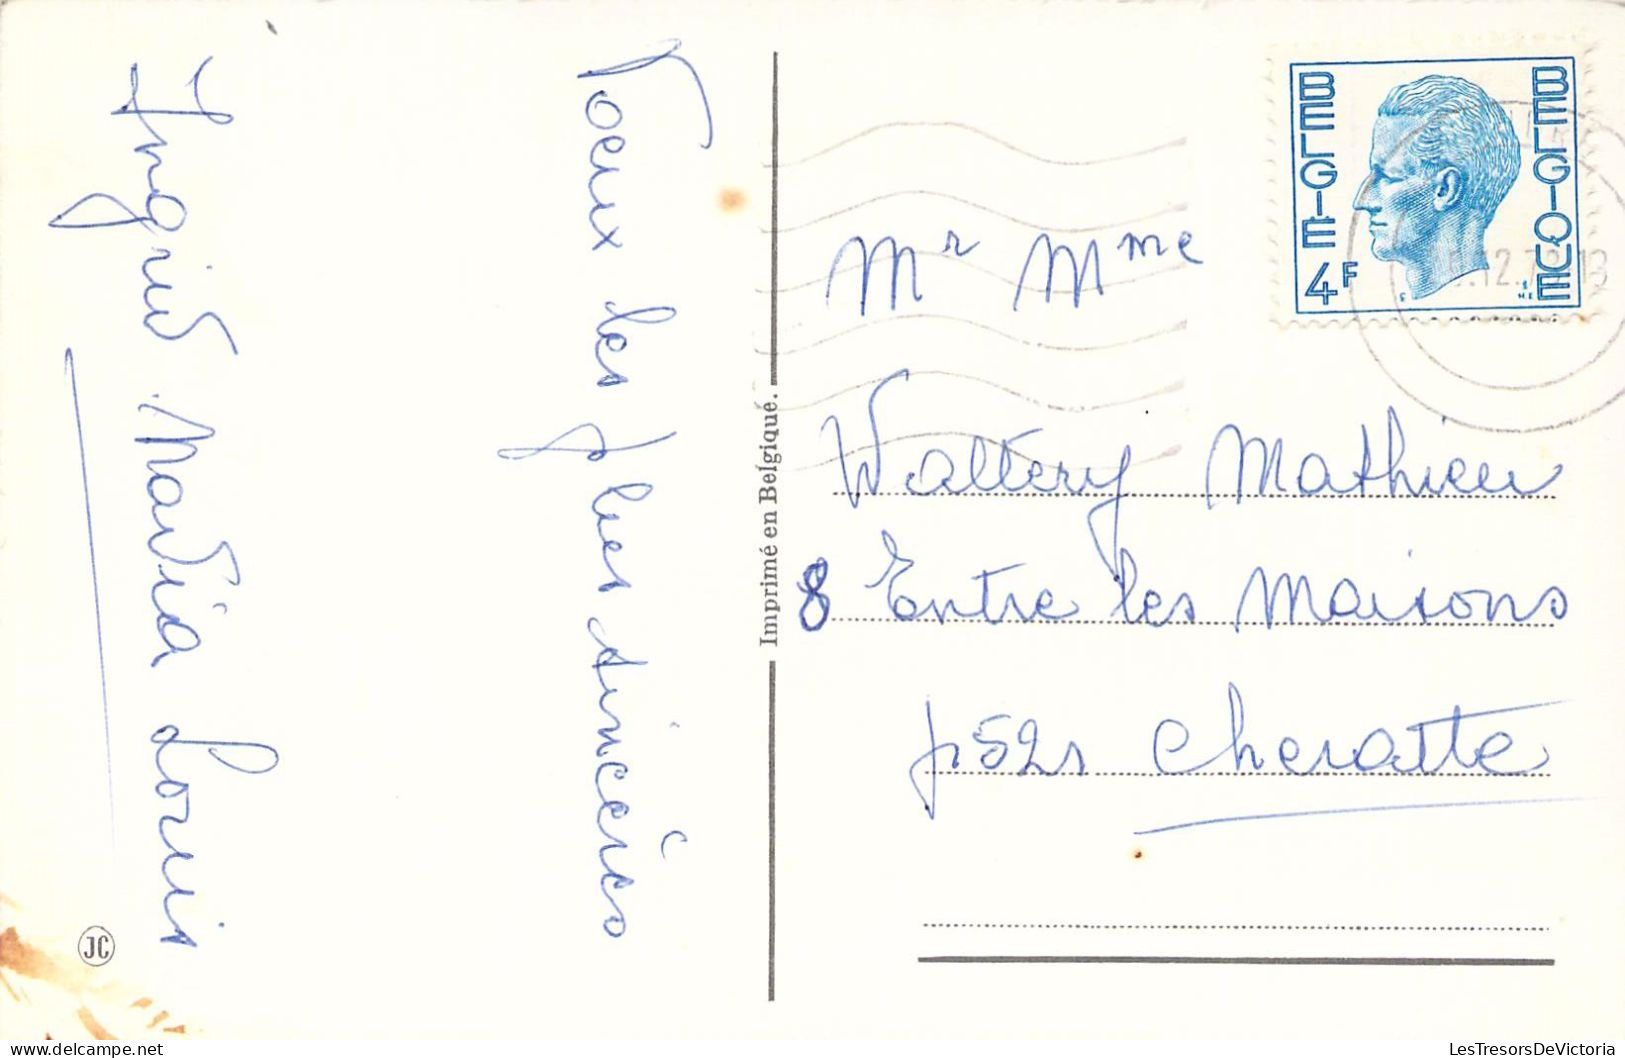 Voeux les plus sincères
Ingrid Nadia Louis
JC
Imprimé en Belgique.
BELGIE
BELGIQUE
4F
.12.78 13
Mr Mme
Wattery Mathieu
8 Entre les Maisons
4521 Cheratte
LesTresorsDeVictoria